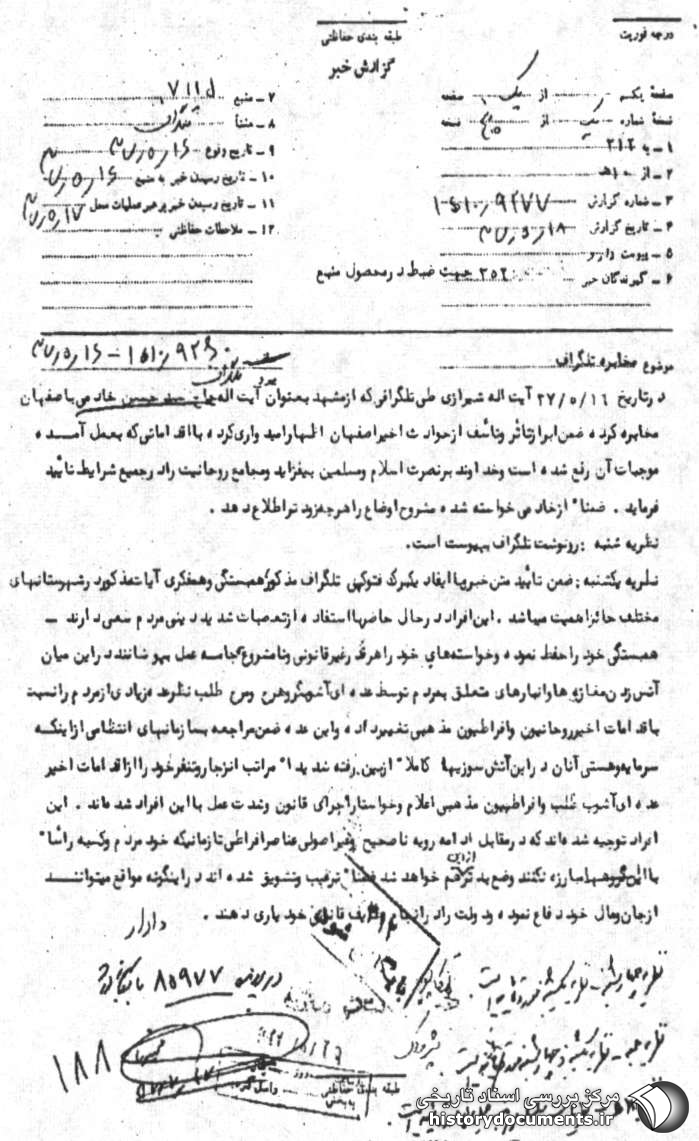 درجه فوریت
طبقه بندی حفاظتی
گزارش خبر
صفحهٔ یکم از یک صفحه
نسخهٔ شماره یک از پنج نسخه
۱ – به ۳۱۲
۲ – از ۱۰ هـ
۳ – شماره گزارش ۱۰۱۰/۹۲۷۷
۴ – تاریخ گزارش ۳۷/۵/۱۸
۵ – پیوست دارد
۶ – گیرندگان خبر ۲۵۲ جهت ضبط در محصول منبع
۷ – منبع ۷۱۱۵
۸ – منشأ تلگراف
۹ – تاریخ وقوع ۳۷/۵/۱۶
۱۰ – تاریخ رسیدن خبر به منبع ۳۷/۵/۱۶
۱۱ – تاریخ رسیدن خبر برهبر عملیات محل ۳۷/۵/۱۷
۱۲ – ملاحظات حفاظتی
موضوع مخابره تلگراف
درتاریخ ۲۷/۵/۱۶ آیت اله شیرازی طی تلگرافی که ازمشهد بعنوان آیت اله حاج سید حسین خادمی باصفهان
مخابره کرده ضمن ابراز تاثر و تاسف ازحوادث اخیراصفهان اظهارامیدواری کرده بااقداماتی که بعمل آمده
موجبات آن رفع شده است وخداوند برنصرت اسلام ومسلمین بیفزاید ومجامع روحانیت رادرجمیع شرایط تائید
فرماید . ضمنا" ازخادمی خواسته شده مشروح اوضاع راهرچه زودتر اطلاع دهد .
نظریه شنبه : رونوشت تلگراف بپیوست است .
نظریه یکشنبه : ضمن تائید متن خبرباایفاد یکبرگ فتوکپی تلگراف مذکور همبستگی وهمفکری آیات مذکور درشهرستانهای
مختلف حائزاهمیت میباشد . این افراد درحال حاضربااستفاده ازتعصبات شدید دینی مردم سعی دارند –
همبستگی خودراحفظ نموده وخواسته های خودراهرقدرغیرقانونی ونامشروع بجامه عمل بپوشانند دراین میان
آتش زدن مغازه ها وانبارهای متعلق بمردم توسط عده ای آشوبگر وهرج ومرج طلب نظرعده زیادی ازمردم رانسبت
باقدامات اخیرروحانیون وافراطیون مذهبی تغییرداده واین عده ضمن مراجعه بسازمانهای انتظامی ازاینکه
سرمایه وهستی آنان دراین آتش سوزیها کاملا" ازبین رفته شدیدا" مراتب انزجاروتنفرخودراازاقدامات اخیر
عده ای آشوب طلب وافراطیون مذهبی اعلام وخواستاراجرای قانون وشدت عمل بااین افراد شده اند . این
افراد توجیه شده اندکه درمقابل ادامه رویه ناصحیح وغیراصولی عناصرافراطی تازمانیکه خود مردم وکسبه راسا"
بااین گروهها مبارزه نکنند وضع بدتر ازاین هم خواهد شد ضمنا" ترغیب وتشویق شده اند دراینگونه مواقع میتوانند
ازجان ومال خود دفاع نموده ودولت رادرانجام وظایف قانونی خودیاری دهند .
نظریه چهارشنبه – نظریه یکشنبه مورد تائید است .
۱۸۸
طبقه بندی حفاظتی
مرکز بررسی اسناد تاریخی
historydocuments.ir